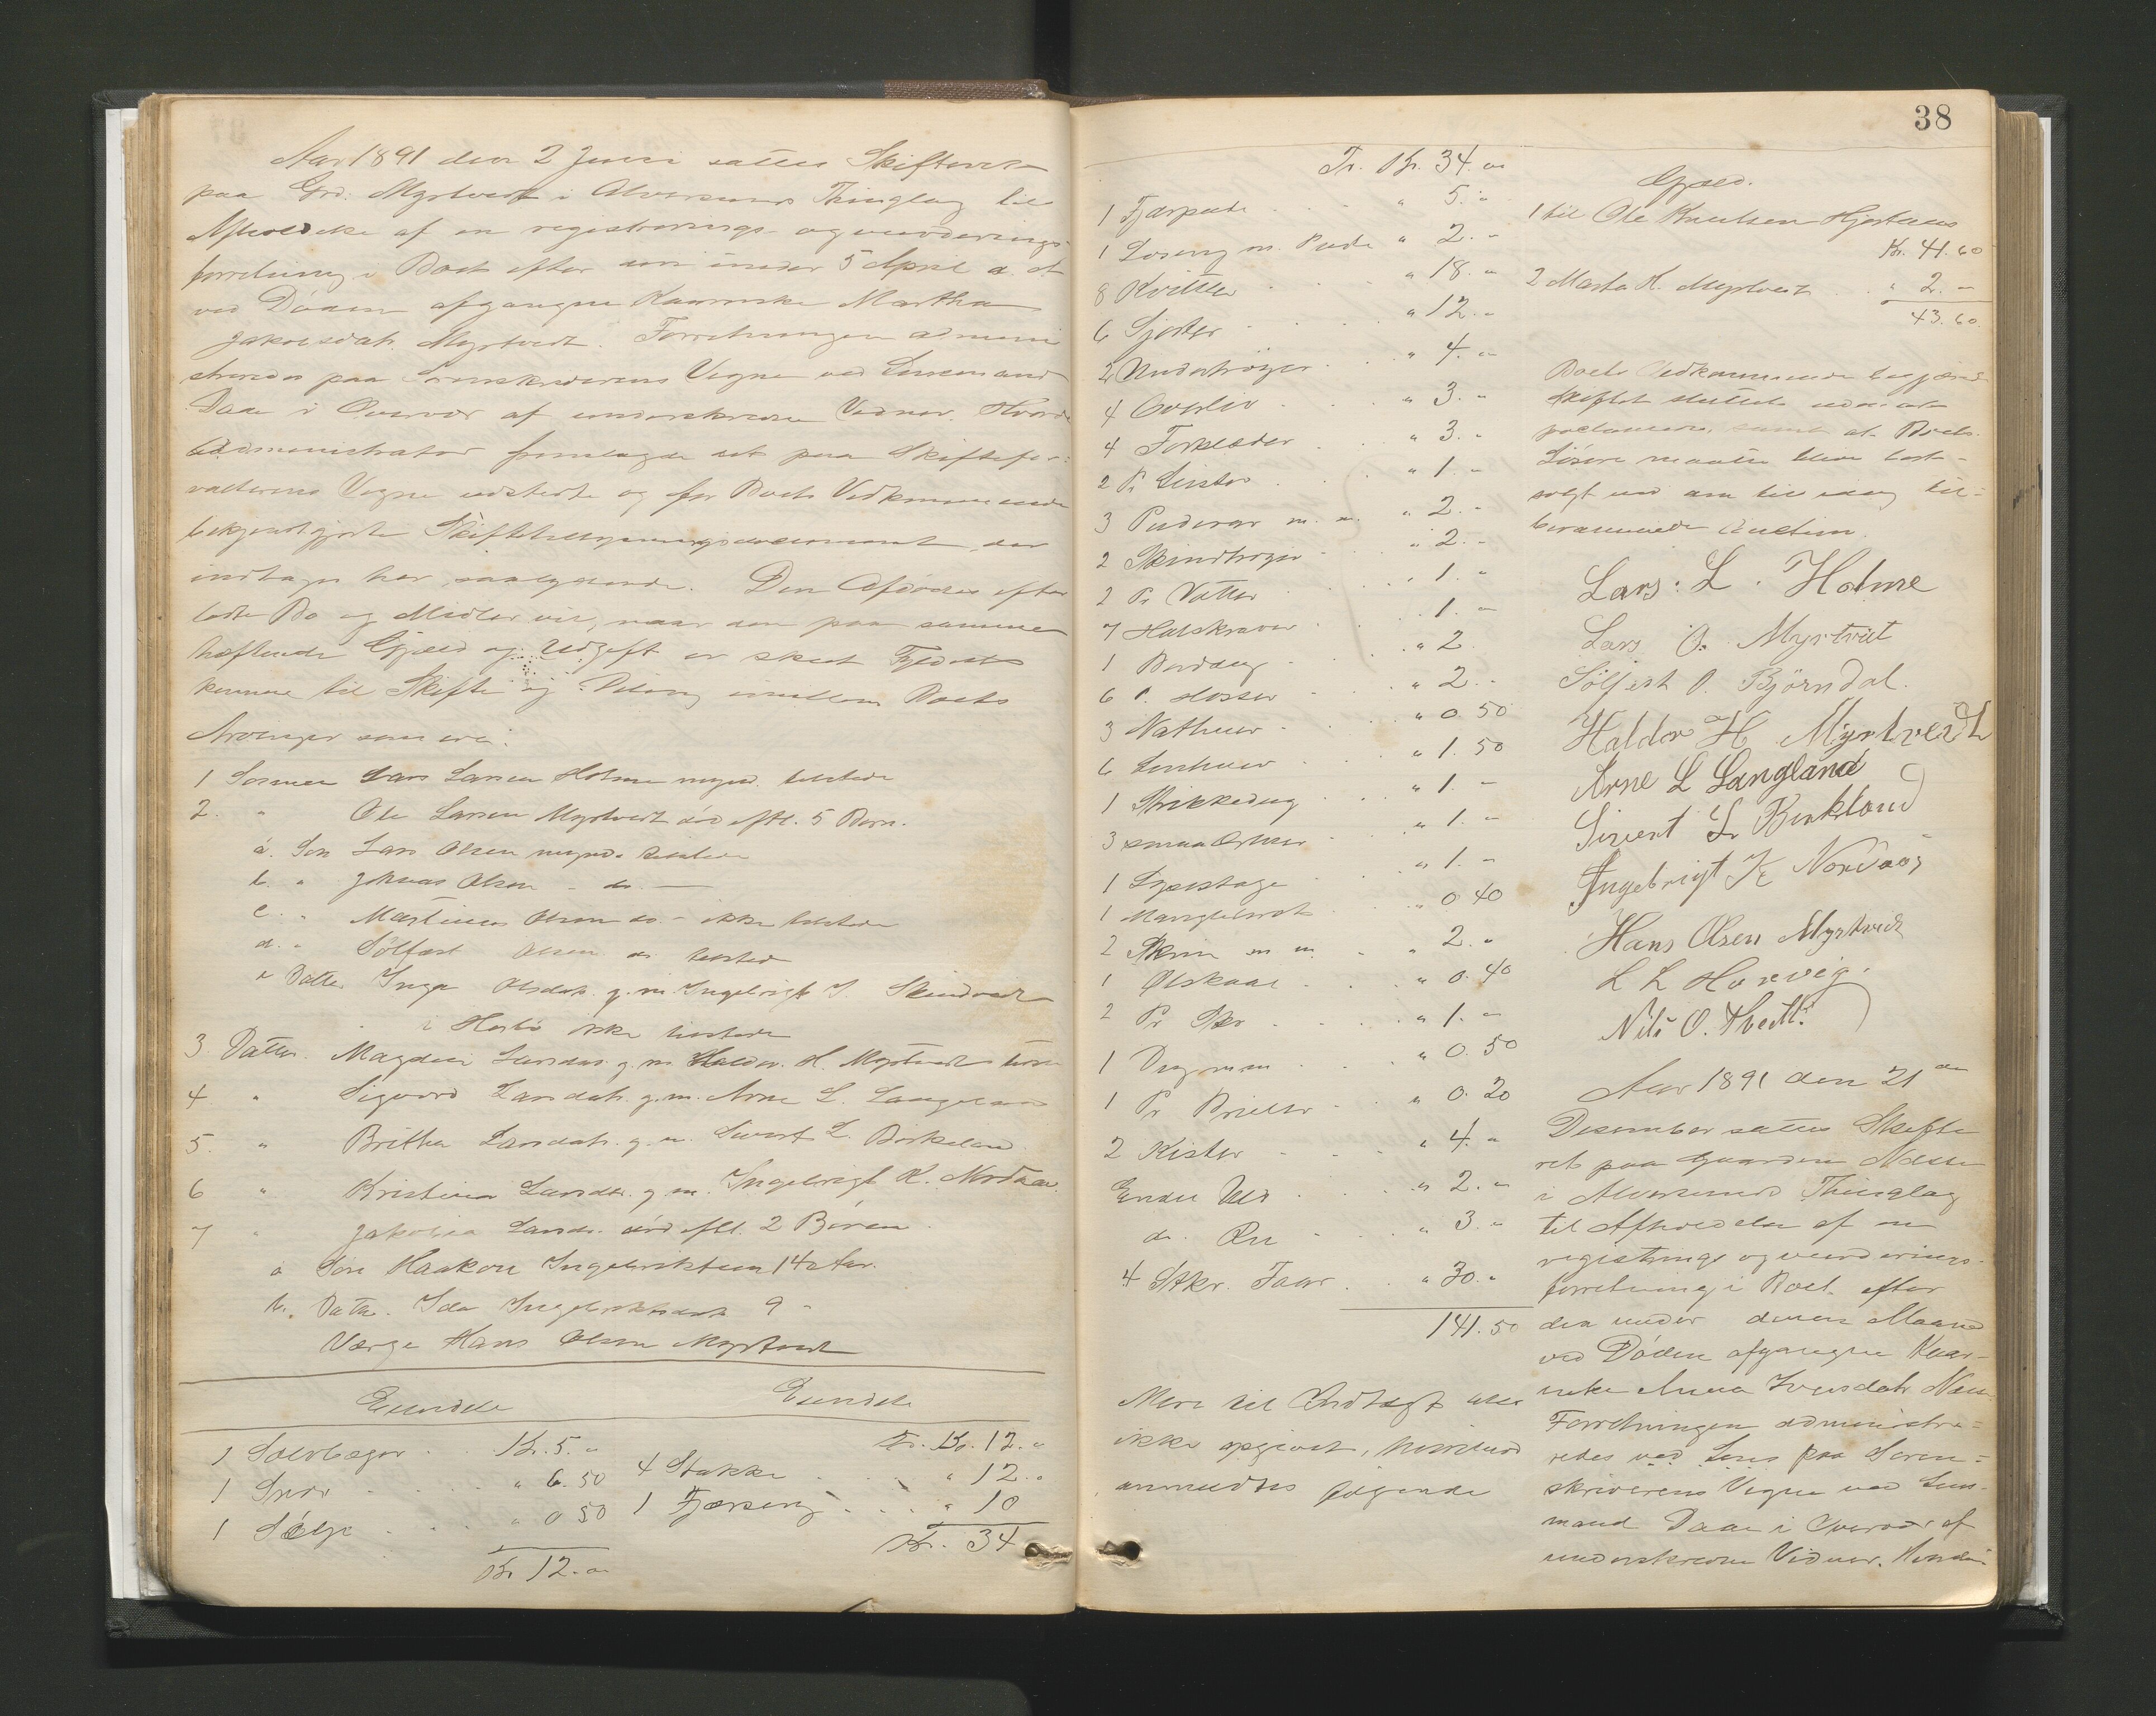 Aar 1891 den 2 Juni sattes Skifteret
paa Grd. Myrtvedt i Alversunds Thinglag til
Afholdelse af en registrerings- og vurderings-
forretning i Boet efter den under 5 April d. A.
ved Døden afgangne Kaarenke Martha
Jakobsdatr. Myrtvedt. Forretningen admini-
streredes paa Sorenskriverens Vegne ved Lensmand
Daae i Overvær af underskrevne Vidner. Hvorda
Administrator fremlagde det paa Skiftefor-
valterens Vegne udstedte og for Boets Vedkommende
bekjendtgjorte Skiftetillysningsdocument, der
indtages her saalydende. Den Afdødes efter
ladte Bo og Midler vil, naar den paa samme
hæftende Gjæld og Udgift er skeet Fyldest
komme til Skifte og Deling imellem Boets
Arvinger som ere:
1 Sønnen Lars Larsen Holme mynd. tilstede
2. " Ole Larsen Myrtvedt død eftl. 5 Børn.
a. Søn Lars Olsen mynd. tilstede
b. " Johnas Olsen - do. —
c. " Martinus Olsen do - ikke tilstede
d. " Sølfæst Olsen do tilsted
e Datter Inga Olsdatr. g. m. Ingebrigt J.
i ikke tilstede
3. Datter Magdeli Larsdtr. g. m. Haldor H. Myrtvedt
4 " Sigvord Larsdatr. g. m. Arne L. Langeland
5. " Britha Larsdatr. g. m. Sivert L. Birkeland
6 " Kristina Larsdtr. g. m. Ingebrigt K. Nordaas
7 " Jakobia Larsdr. død eftl. 2 Børn.
a Søn Haakon Ingebriktsen 14 Aar.
b. Datter Ida Ingebriktsdatr 9 "
Værge Hans Olsen Myrtvedt
Eiendele
1 Sølvbæger Kr. 5. "
1 " 6. 50
1 Sølje " 0 50
Kr 12. "
Eiendele
Tr. Kr. 12. "
4 Stakke " 12. "
1 Fjærseng " 10
Kr. 34
38
Tr. Kr. 34. "
1 Fjærpude " 5. "
1 m. Pude " 2. "
8 Kvitler " 18. "
6 " 12. "
2 Undertrøyer " 4. "
4 Overliv " 3. "
4 Forklæder " 3. "
2 Pr Lister " 1. "
3 Pudevar m. m. " 2. "
2 Skindtrøyer " 2. "
2 Pr Vatter " 1. "
7 Halskraver 1. "
1 Borddug " 2.
6 P. Hosser " 2. "
3 Nathuer " 0 50
6 Linhuer " 1. 50
1 Strikkedug " 1. "
3 smaa " 1. "
1 Lysestage " 1. "
1 " 0 40
2 Skrin m. m. " 2. "
1 Ølskaal " 0. 40
2 Pr Sko " 1. "
1 m m " 0. 50
1 Pr Briller " 0. 20
2 Kister " 4. "
Endel Uld " 2. "
do. " 3. "
4 Stkr. Faar " 30. "
141. 50
Mere til Indtægt blev
ikke opgivet, hvorimod
anmeldtes følgende
Gjæld.
1 til Ole Knudsen Hjertaas
Kr. 41. 60
2 Marta H. Myrtvedt " 2. "
43. 60
Boets Vedkommende begjærede
Skiftet sluttet
samt at Boets
Løsøre maatte blive bort-
solgt ved den til idag til-
berammede Auction.
Lars. L. Holme
Lars O. Myrtvet
Sølfest O. Björndal.
Haldor H Myrtvedt
Arne L Langland
Sivert L Birkland
Ingebrigt K Nordaas
Hans Olsen Myrtvedt
L L Hosevig.
Nils O. Tveitt.
Aar 1891 den 21 de
Desember sattes Skifte
ret paa Gaarden
i Alversunds Thinglag
til Afholdelse af en
registrings og vurderings-
forretning i Boet efter
den under denne Maaned
ved Døden afgangne Kaar-
enke Anna
Forretningen administre-
redes ved paa Soren-
skriverens Vegne ved Lens-
mand Daae i Overvær af
underskrevne Vidner. Hvorda